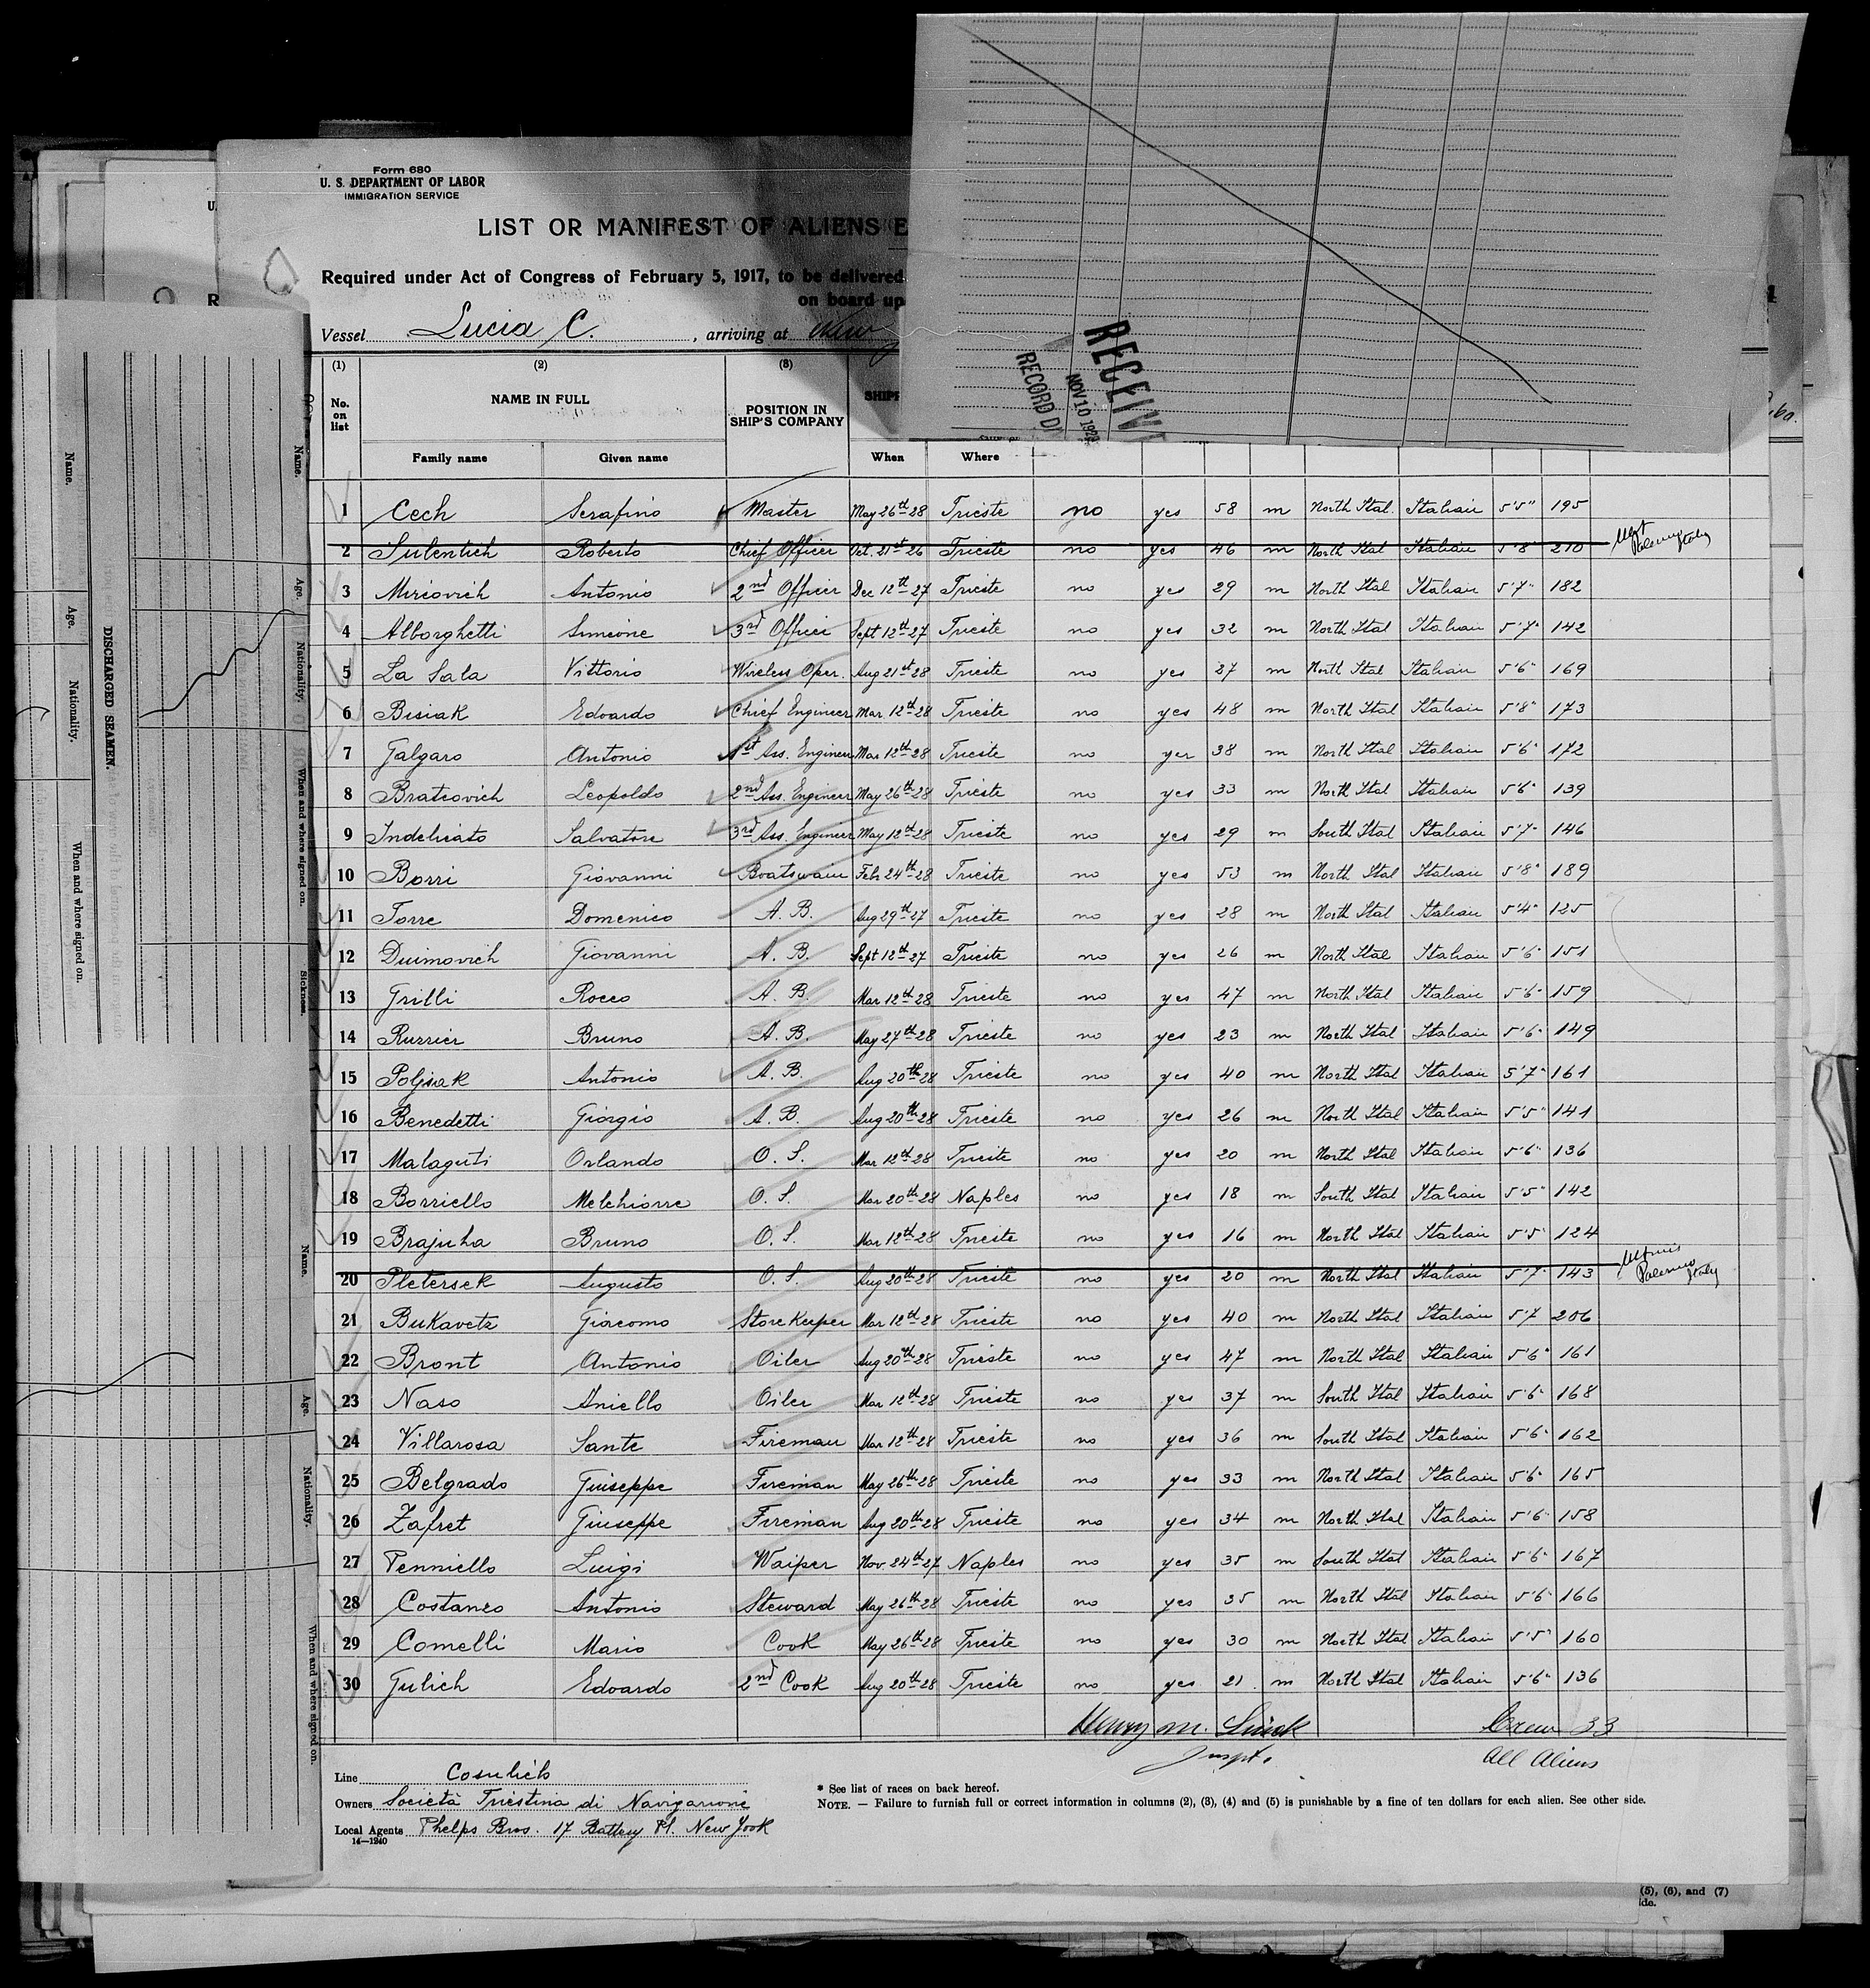 Form 680
U. S. DEPARTMENT OF LABOR
IMMIGRATION SERVICE
LIST OR MANIFEST OF ALIENS E
Required under Act of Congress of February 5, 1917, to be delivered
on board up
Vessel Lucia C. , arriving at New
RECEIV
NOV 10 192
RECORD DI
(1) (2) (3)
No. on list NAME IN FULL POSITION IN SHIP'S COMPANY SHIPP
Family name Given name When Where
1 Cech Serafino Master May 26th 28 Trieste no yes 58 m North Ital. Italian 5'5" 195
2 Sulentich Roberto Chief Officer Oct. 21st 26 Trieste no yes 46 m North Ital Italian 5'8" 210 Palermo Italy
3 Mircovich Antonio 2nd Officer Dec 12th 27 Trieste no yes 29 m North Ital Italian 5'7" 182
4 Alborghetti Simeone 3rd Officer Sept 12th 27 Trieste no yes 32 m North Ital Italian 5'7" 142
5 La Sala Vittorio Wireless Oper. Aug 21st 28 Trieste no yes 27 m North Ital Italian 5'6" 169
6 Bisiak Edoardo Chief Engineer Mar 12th 28 Trieste no yes 48 m North Ital Italian 5'8" 173
7 Galgaro Antonio 1st Ass. Engineer Mar 12th 28 Trieste no yes 38 m North Ital Italian 5'6" 172
8 Bratcovich Leopoldo 2nd Ass. Engineer May 26th 28 Trieste no yes 33 m North Ital Italian 5'6" 139
9 Indelicato Salvatore 3rd Ass. Engineer May 12th 28 Trieste no yes 29 m South Ital Italian 5'7" 146
10 Borri Giovanni Boatswain Febr 24th 28 Trieste no yes 53 m North Ital Italian 5'8" 189
11 Torre Domenico A. B. Aug 29th 27 Trieste no yes 28 m North Ital Italian 5'4" 125
12 Duimovich Giovanni A. B. Sept 12th 27 Trieste no yes 26 m North Ital Italian 5'6" 151
13 Grilli Rocco A. B. Mar 12th 28 Trieste no yes 47 m North Ital Italian 5'6" 159
14 Russier Bruno A. B. May 27th 28 Trieste no yes 23 m North Ital Italian 5'6" 149
15 Poljsak Antonio A. B. Aug 20th 28 Trieste no yes 40 m North Ital Italian 5'7" 161
16 Benedetti Giorgio A. B. Aug 20th 28 Trieste no yes 26 m North Ital Italian 5'5" 141
17 Malaguti Orlando O. S. Mar 12th 28 Trieste no yes 20 m North Ital Italian 5'6" 136
18 Borriello Melchiorre O. S. Mar 20th 28 Naples no yes 18 m South Ital Italian 5'5" 142
19 Brajuha Bruno O. S. Mar 12th 28 Trieste no yes 16 m North Ital Italian 5'5" 124
20 Pletersek Augusto O. S. Aug 20th 28 Trieste no yes 20 m North Ital Italian 5'7" 143 Palermo Italy
21 Bukavetz Giacomo Storekeeper Mar 12th 28 Trieste no yes 40 m North Ital Italian 5'7 206
22 Bront Antonio Oiler Aug 20th 28 Trieste no yes 47 m North Ital Italian 5'6" 161
23 Naso Aniello Oiler Mar 12th 28 Trieste no yes 37 m South Ital Italian 5'6" 168
24 Villarosa Sante Fireman Mar 12th 28 Trieste no yes 36 m South Ital Italian 5'6" 162
25 Belgrado Giuseppe Fireman May 26th 28 Trieste no yes 33 m North Ital Italian 5'6" 165
26 Zafret Giuseppe Fireman Aug 20th 28 Trieste no yes 34 m North Ital Italian 5'6" 158
27 Penniello Luigi Waiper Nov. 24th 27 Naples no yes 35 m South Ital Italian 5'6" 167
28 Costanzo Antonio Steward May 26th 28 Trieste no yes 35 m North Ital Italian 5'6" 166
29 Comelli Mario Cook May 26th 28 Trieste no yes 30 m North Ital Italian 5'5" 160
30 Julich Edoardo 2nd Cook Aug 20th 28 Trieste no yes 21 m North Ital Italian 5'6" 136
Henry M. Crew 33
Inspt. All Aliens
Line Cosulich
Owners Società Triestina di Navigazione
Local Agents Phelps Bros. 17 Battery Pl. New York
14—1240
* See list of races on back hereof.
NOTE. — Failure to furnish full or correct information in columns (2), (3), (4) and (5) is punishable by a fine of ten dollars for each alien. See other side.
(5), (6), and (7)
ide.
DISCHARGED SEAMEN.
Name. Age. Nationality. When and where signed on.
Name. Age. Nationality. When and where signed on. Sickness.
Name. Age. Nationality. When and where signed on.